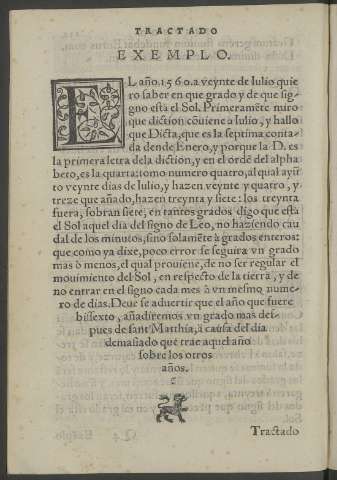 TRACTADO
EXEMPLO.
EL año.1560.a veynte de Iulio quie
ro saber en que grado y de que sig-
gno esta el Sol. Primeramẽte miro
que diction cõuiene a Iulio, y hallo
que Dicta, que es la septima conta-
da dende Enero, y porque la D. es
la primera letra dela diction, y en el ordẽ del alpha
beto, es la quarta: tomo numero quatro, al qual ayũ
to veynte dias de Iulio, y hazen veynte y quatro, y
treze que añado, hazen treynta y siete: los treynta
fuera, sobran siete, en tantos grados digo que està
el Sol aquel dia del signo de Leo, no haziendo cau
dal de los minutos, sino solamẽte à grados enteros:
que como ya dixe, poco error se seguira vn grado
mas ò menos, el qual prouiene, de no ser regular el
mouimiento del Sol, en respecto de la tierra, y de
no entrar en el signo cada mes à vn mesmo nume-
ro de dias. Deue se aduertir que el año que fuere
bissexto, añadiremos vn grado mas des-
pues de sant Matthia, à causa del dia
demasiado que trae aquel año
sobre los otros
años.
Tractado